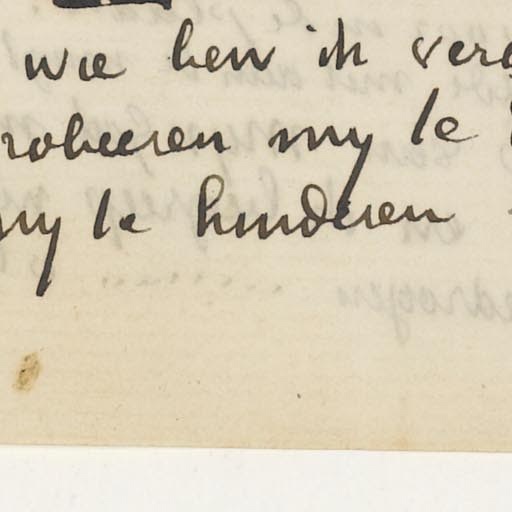 wie ben ik verg
robeeren my te
my te hinderen